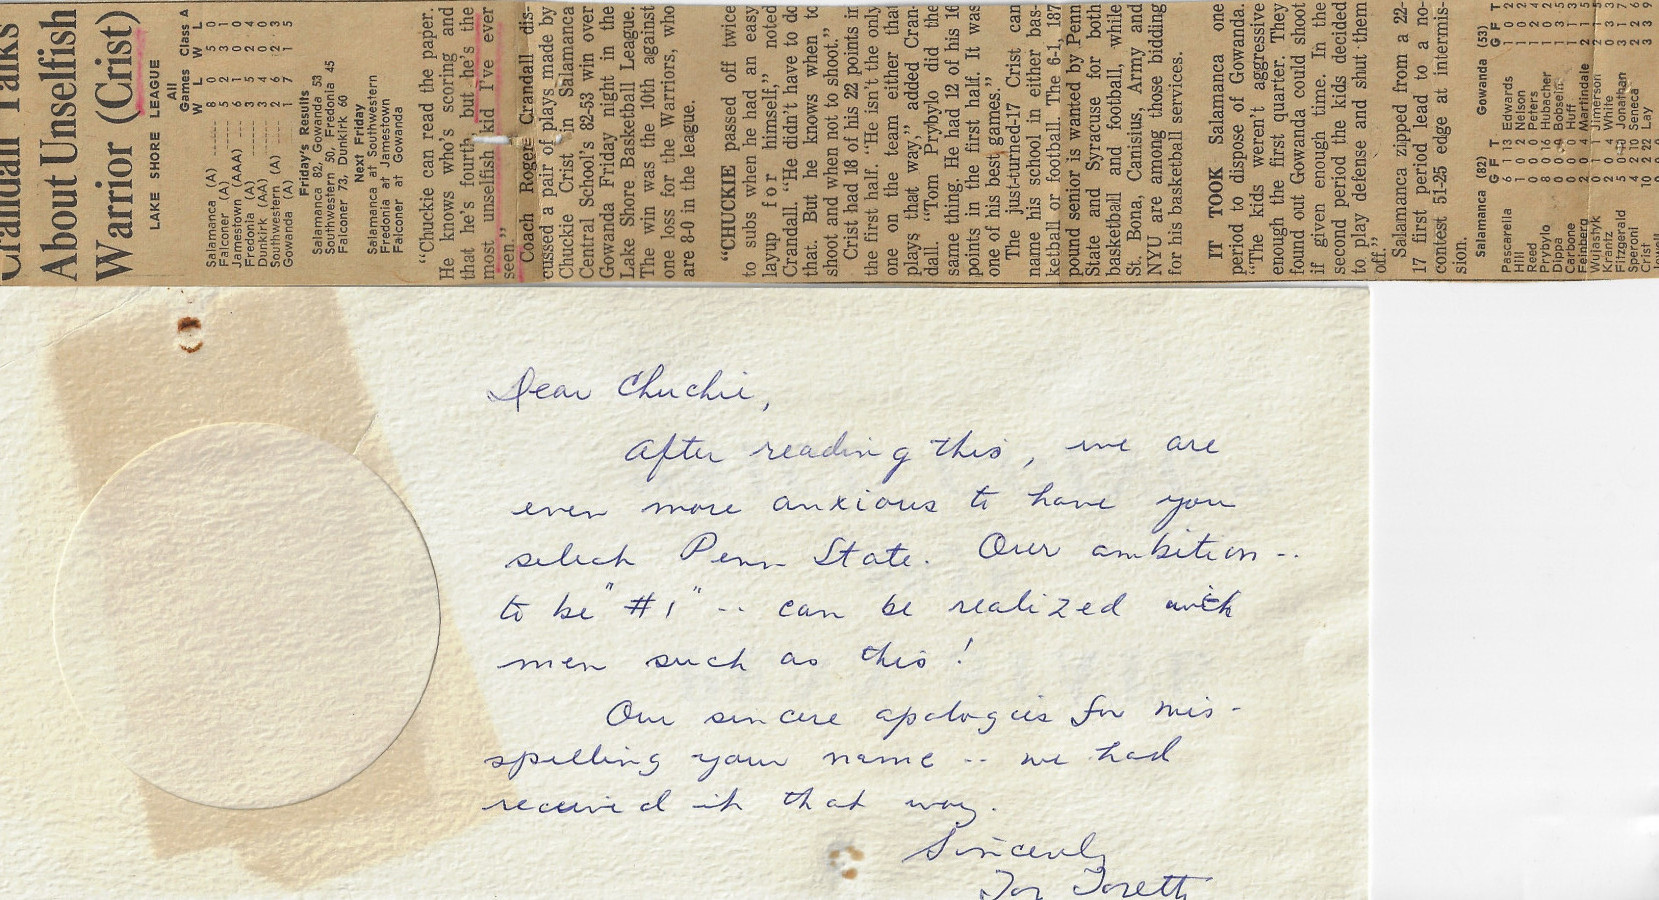 Crandall Talks
About Unselfish
Warrior (Crist)
LAKE SHORE LEAGUE
All
Games Class A
W L W L
Salamanca (A) 8 5 5 0
Falconer (A)
Jamestown (AAA)
Fredonia (A)
Dunkirk (AA)
Southwestern (A)
Gowanda (A) 1 7 1 5
Friday's Results
Salamanca 82, Gowanda 53
Southwestern 50, Fredonia 45
Falconer 73, Dunkirk 60
Next Friday
Salamanca at Southwestern
Fredonia at Jamestown
Falconer at Gowanda
"Chuckie can read the paper.
He knows who's scoring and
that he's fourth, but he's the
most unselfish kid I've ever
seen."
Coach Roger Crandall dis-
cussed a pair of plays made by
Chuckie Crist in Salamanca
Central School's 82-53 win over
Gowanda Friday night in the
Lake Shore Basketball League.
The win was the 10th against
one loss for the Warriors, who
are 8-0 in the league.
"CHUCKIE passed off twice
to subs when he had an easy
layup for himself," noted
Crandall. "He didn't have to do
that. But he knows when to
shoot and when not to shoot."
Crist had 18 of his 22 points in
the first half. "He isn't the only
one on the team either that
plays that way," added Cran-
dall. "Tom Prybylo did the
same thing. He had 12 of his 16
points in the first half. It was
one of his best games."
The just-turned-17 Crist can
name his school in either bas-
ketball or football. The 6-1, 187
pound senior is wanted by Penn
State and Syracuse for both
basketball and football, while
St. Bona, Canisius, Army and
NYU are among those bidding
for his basketball services.
IT TOOK Salamanca one
period to dispose of Gowanda.
"The kids weren't aggressive
enough the first quarter. They
found out Gowanda could shoot
if given enough time. In the
second period the kids decided
to play defense and shut them
off."
Salamanca zipped from a 22-
17 first period lead to a no-
contest 51-25 edge at intermis-
sion.
Salamanca (82) Gowanda (53)
G F T G F T
Pascarella 6 1 13 Edwards
Hill Nelson
Reed Peters
Prybylo 8 0 16 Hubacher
Dippa Bobsein
Carpone Huff
Feinberg Martindale
Wojastyk Jimerson
Krantz White
Fitzgerald 5 0 10 Jonathan
Speroni Seneca
Crist 10 2 22 Lay
Dear Chuckie,
After reading this, we are
even more anxious to have you
select Penn State. Our ambition --
to be "#1" -- can be realized with
men such as this!
Our sincere apologies for mis-
spelling your name -- we had
received it that way.
Sincerely